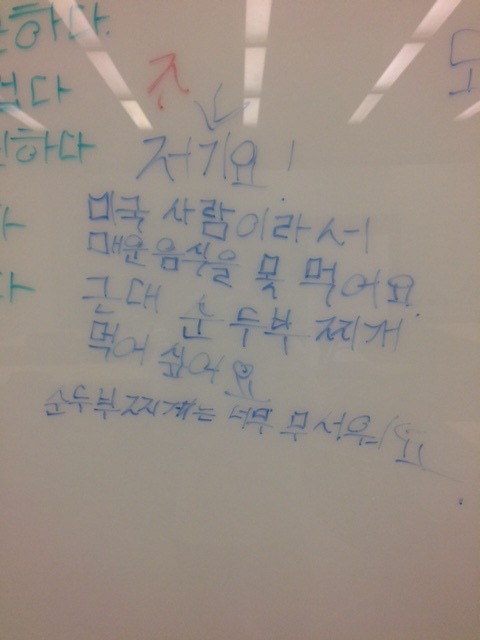 저기요!
미국 사람이라서
매운 음식을 못 먹어요.
근대 순두부 찌개
먹어 싶어요
순두부 찌게는 너무 무서워요.